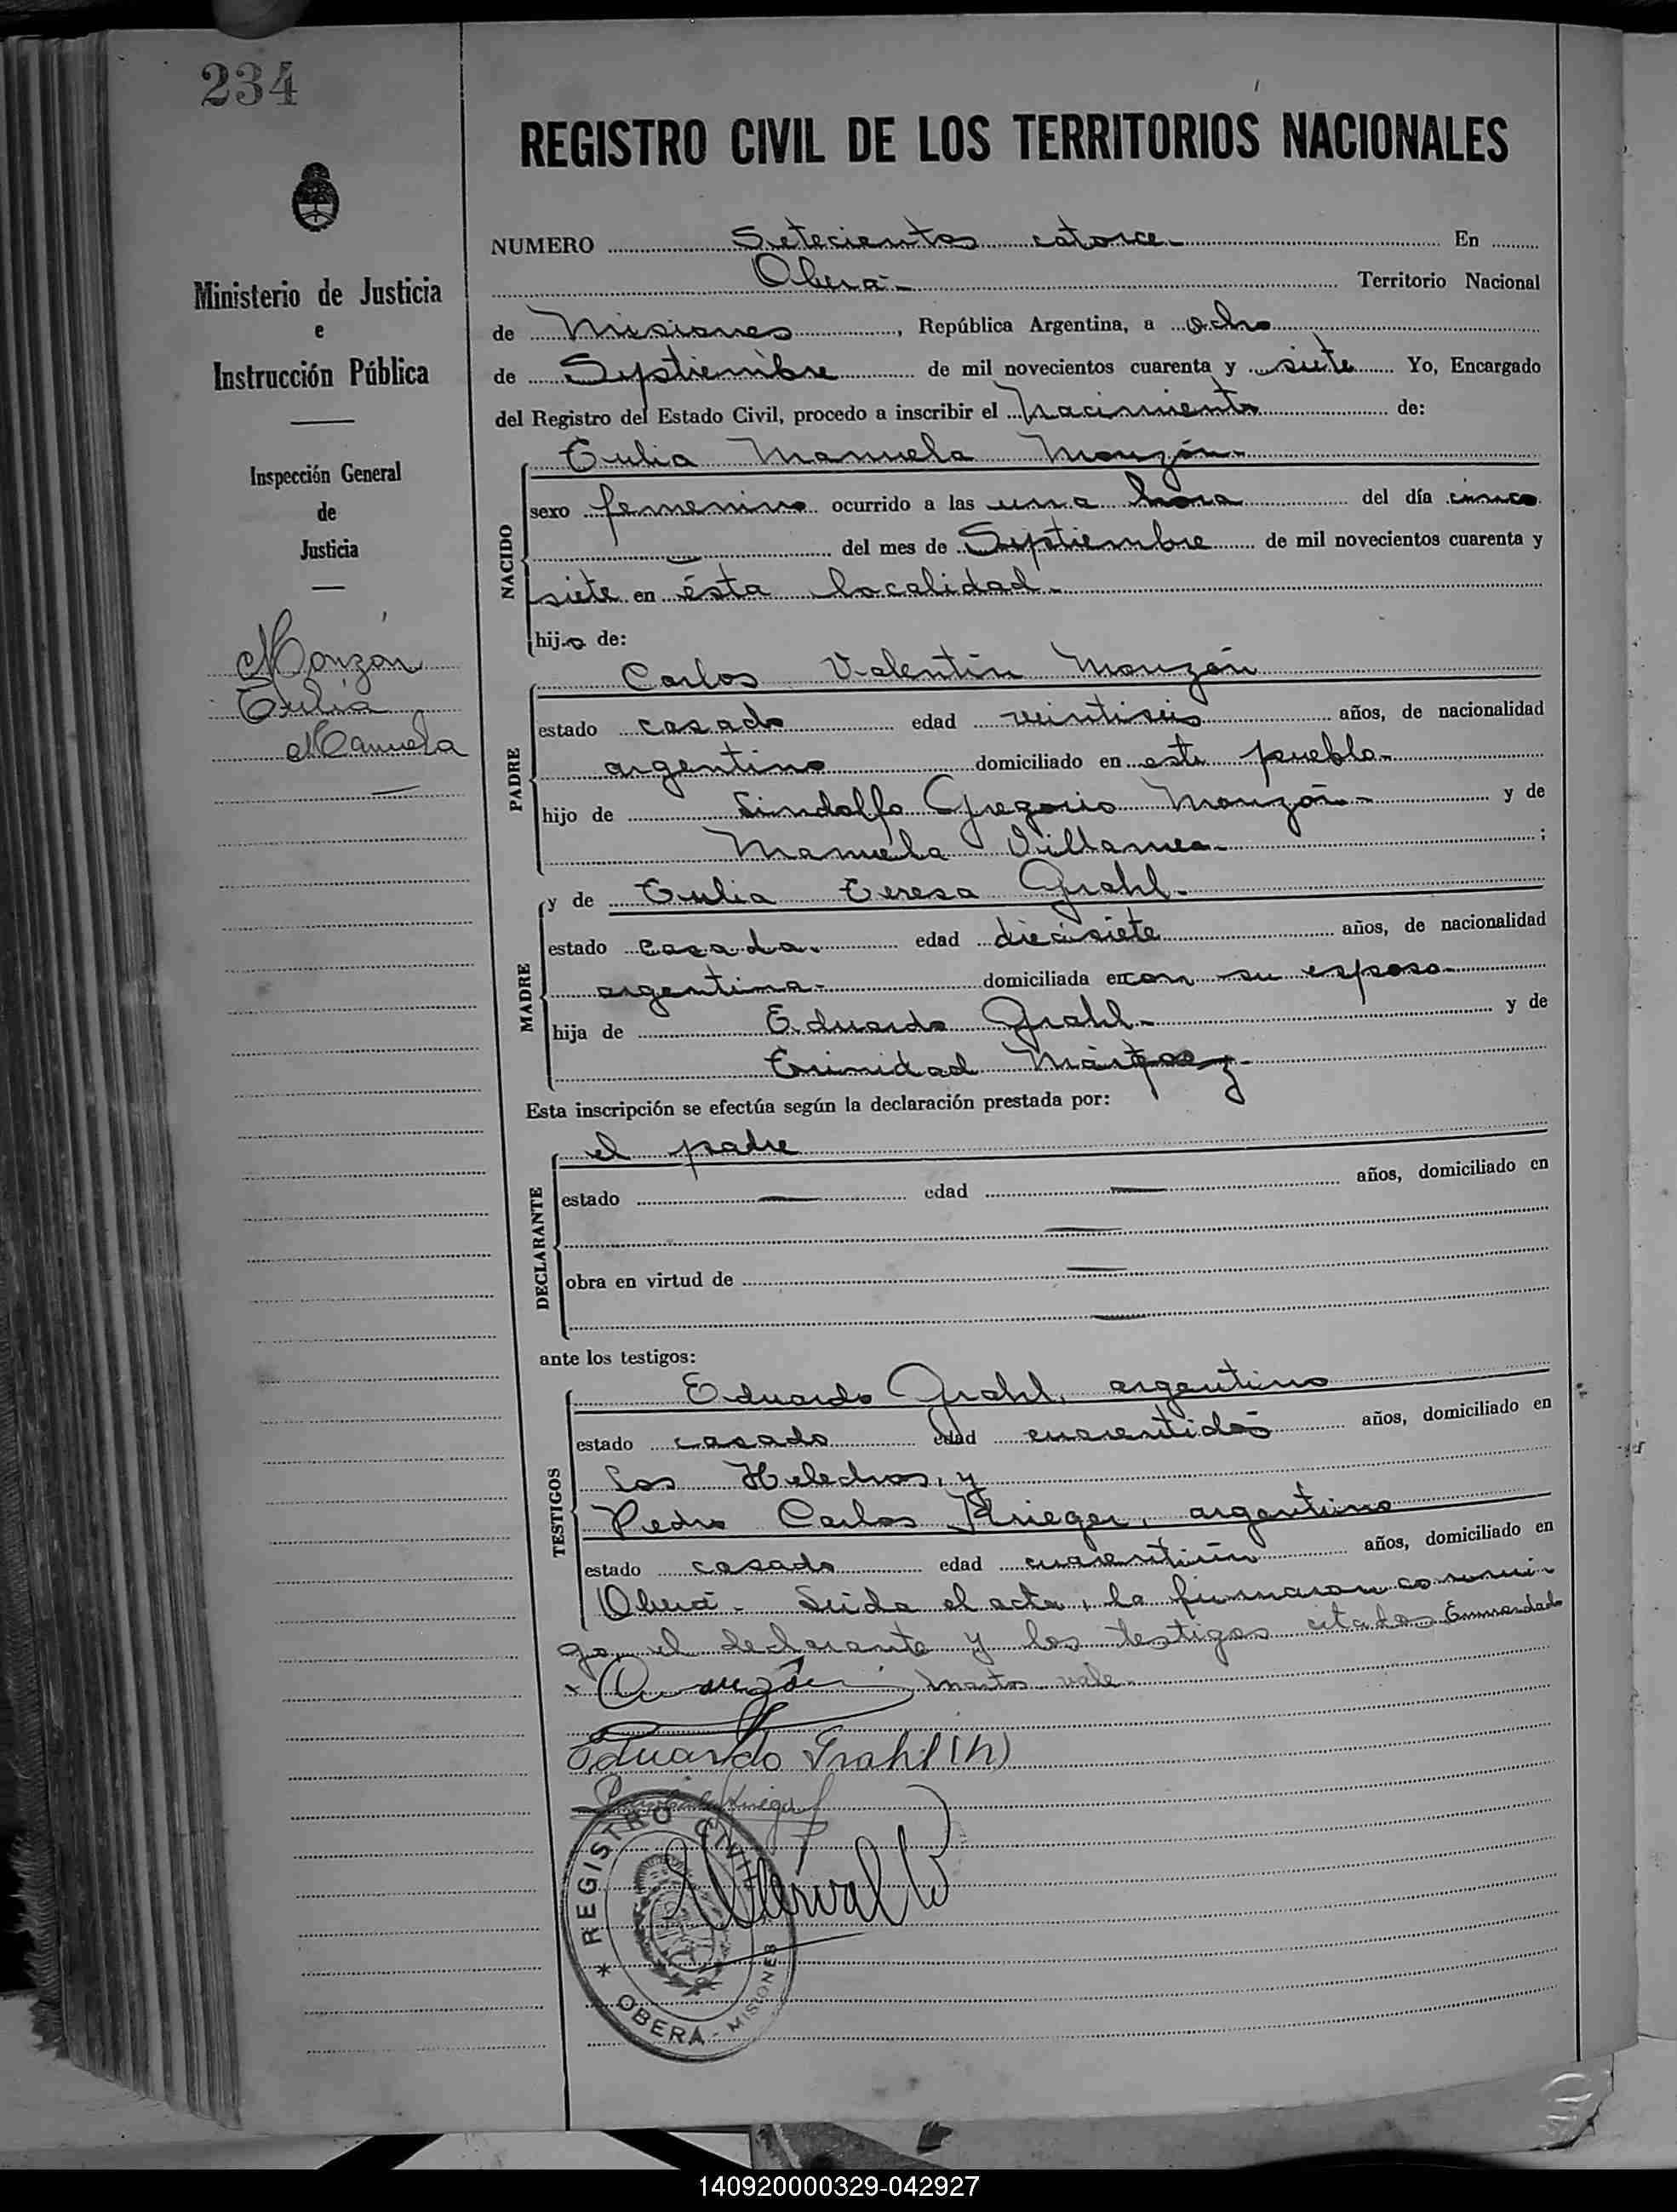 234
REGISTRO CIVIL DE LOS TERRITORIOS NACIONALES
Ministerio de Justicia
e
Instrucción Pública
Inspección General
de
Justicia
Monzón
Tulia
Manuela
NUMERO Setecientos catorce.- En
Oberá.- Territorio Nacional
de Misiones, República Argentina, a ocho
de Septiembre de mil novecientos cuarenta y siete Yo, Encargado
del Registro del Estado Civil, procedo a inscribir el nacimiento de:
NACIDO
Tulia Manuela Monzón.-
sexo femenino ocurrido a las una hora del día cinco
del mes de Septiembre de mil novecientos cuarenta y
siete en ésta localidad.-
hija de:
PADRE
Carlos Valentín Monzón
estado casado edad veintiseis años, de nacionalidad
argentino domiciliado en este pueblo.-
hijo de Lindolfo Gregorio Monzón.- y de
Manuela Villanea.- ;
MADRE
y de Tulia Teresa Grahl.-
estado casada.- edad diecisiete años, de nacionalidad
argentina.- domiciliada en con su esposo.-
hija de Eduardo Grahl.- y de
Trinidad
Esta inscripción se efectúa según la declaración prestada por:
DECLARANTE
el padre
estado edad años, domiciliado en
obra en virtud de
ante los testigos:
TESTIGOS
Eduardo Grahl, argentino
estado casado edad cuarentidós años, domiciliado en
Los Helechos, y
Pedro Carlos Krieger, argentino
estado casado edad cuarentiún años, domiciliado en
Oberá.- Leida el acta, la firmaron conmi-
go, el declarante y los testigos citados Enmendado
vale.-
Eduardo Grahl (h)
REGISTRO CIVIL
* OBERA - MISIONES
140920000329-042927